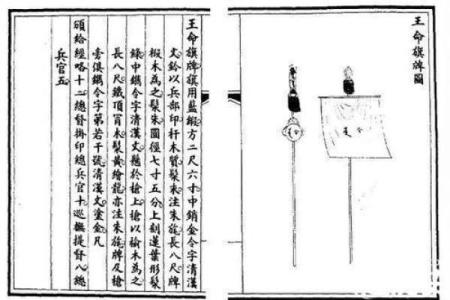 王命旗牌圖
令
王命旗牌旗用藍緞方二尺六寸中銷金令字清漢
文鈐以兵部印杆木質髹朱注朱旄長八尺牌
椴木為之髹朱圓徑七寸五分上刻蓮葉形髹
綠中鐫令字清漢文懸於槍上槍以榆木為之
長八尺鐵頂冒木髹黃繪龍亦注朱旄牌及槍
旁俱鐫令字第若干號清漢文塗金凡
頒給經略十二總督掛印總兵官十巡撫提督八總
兵官五